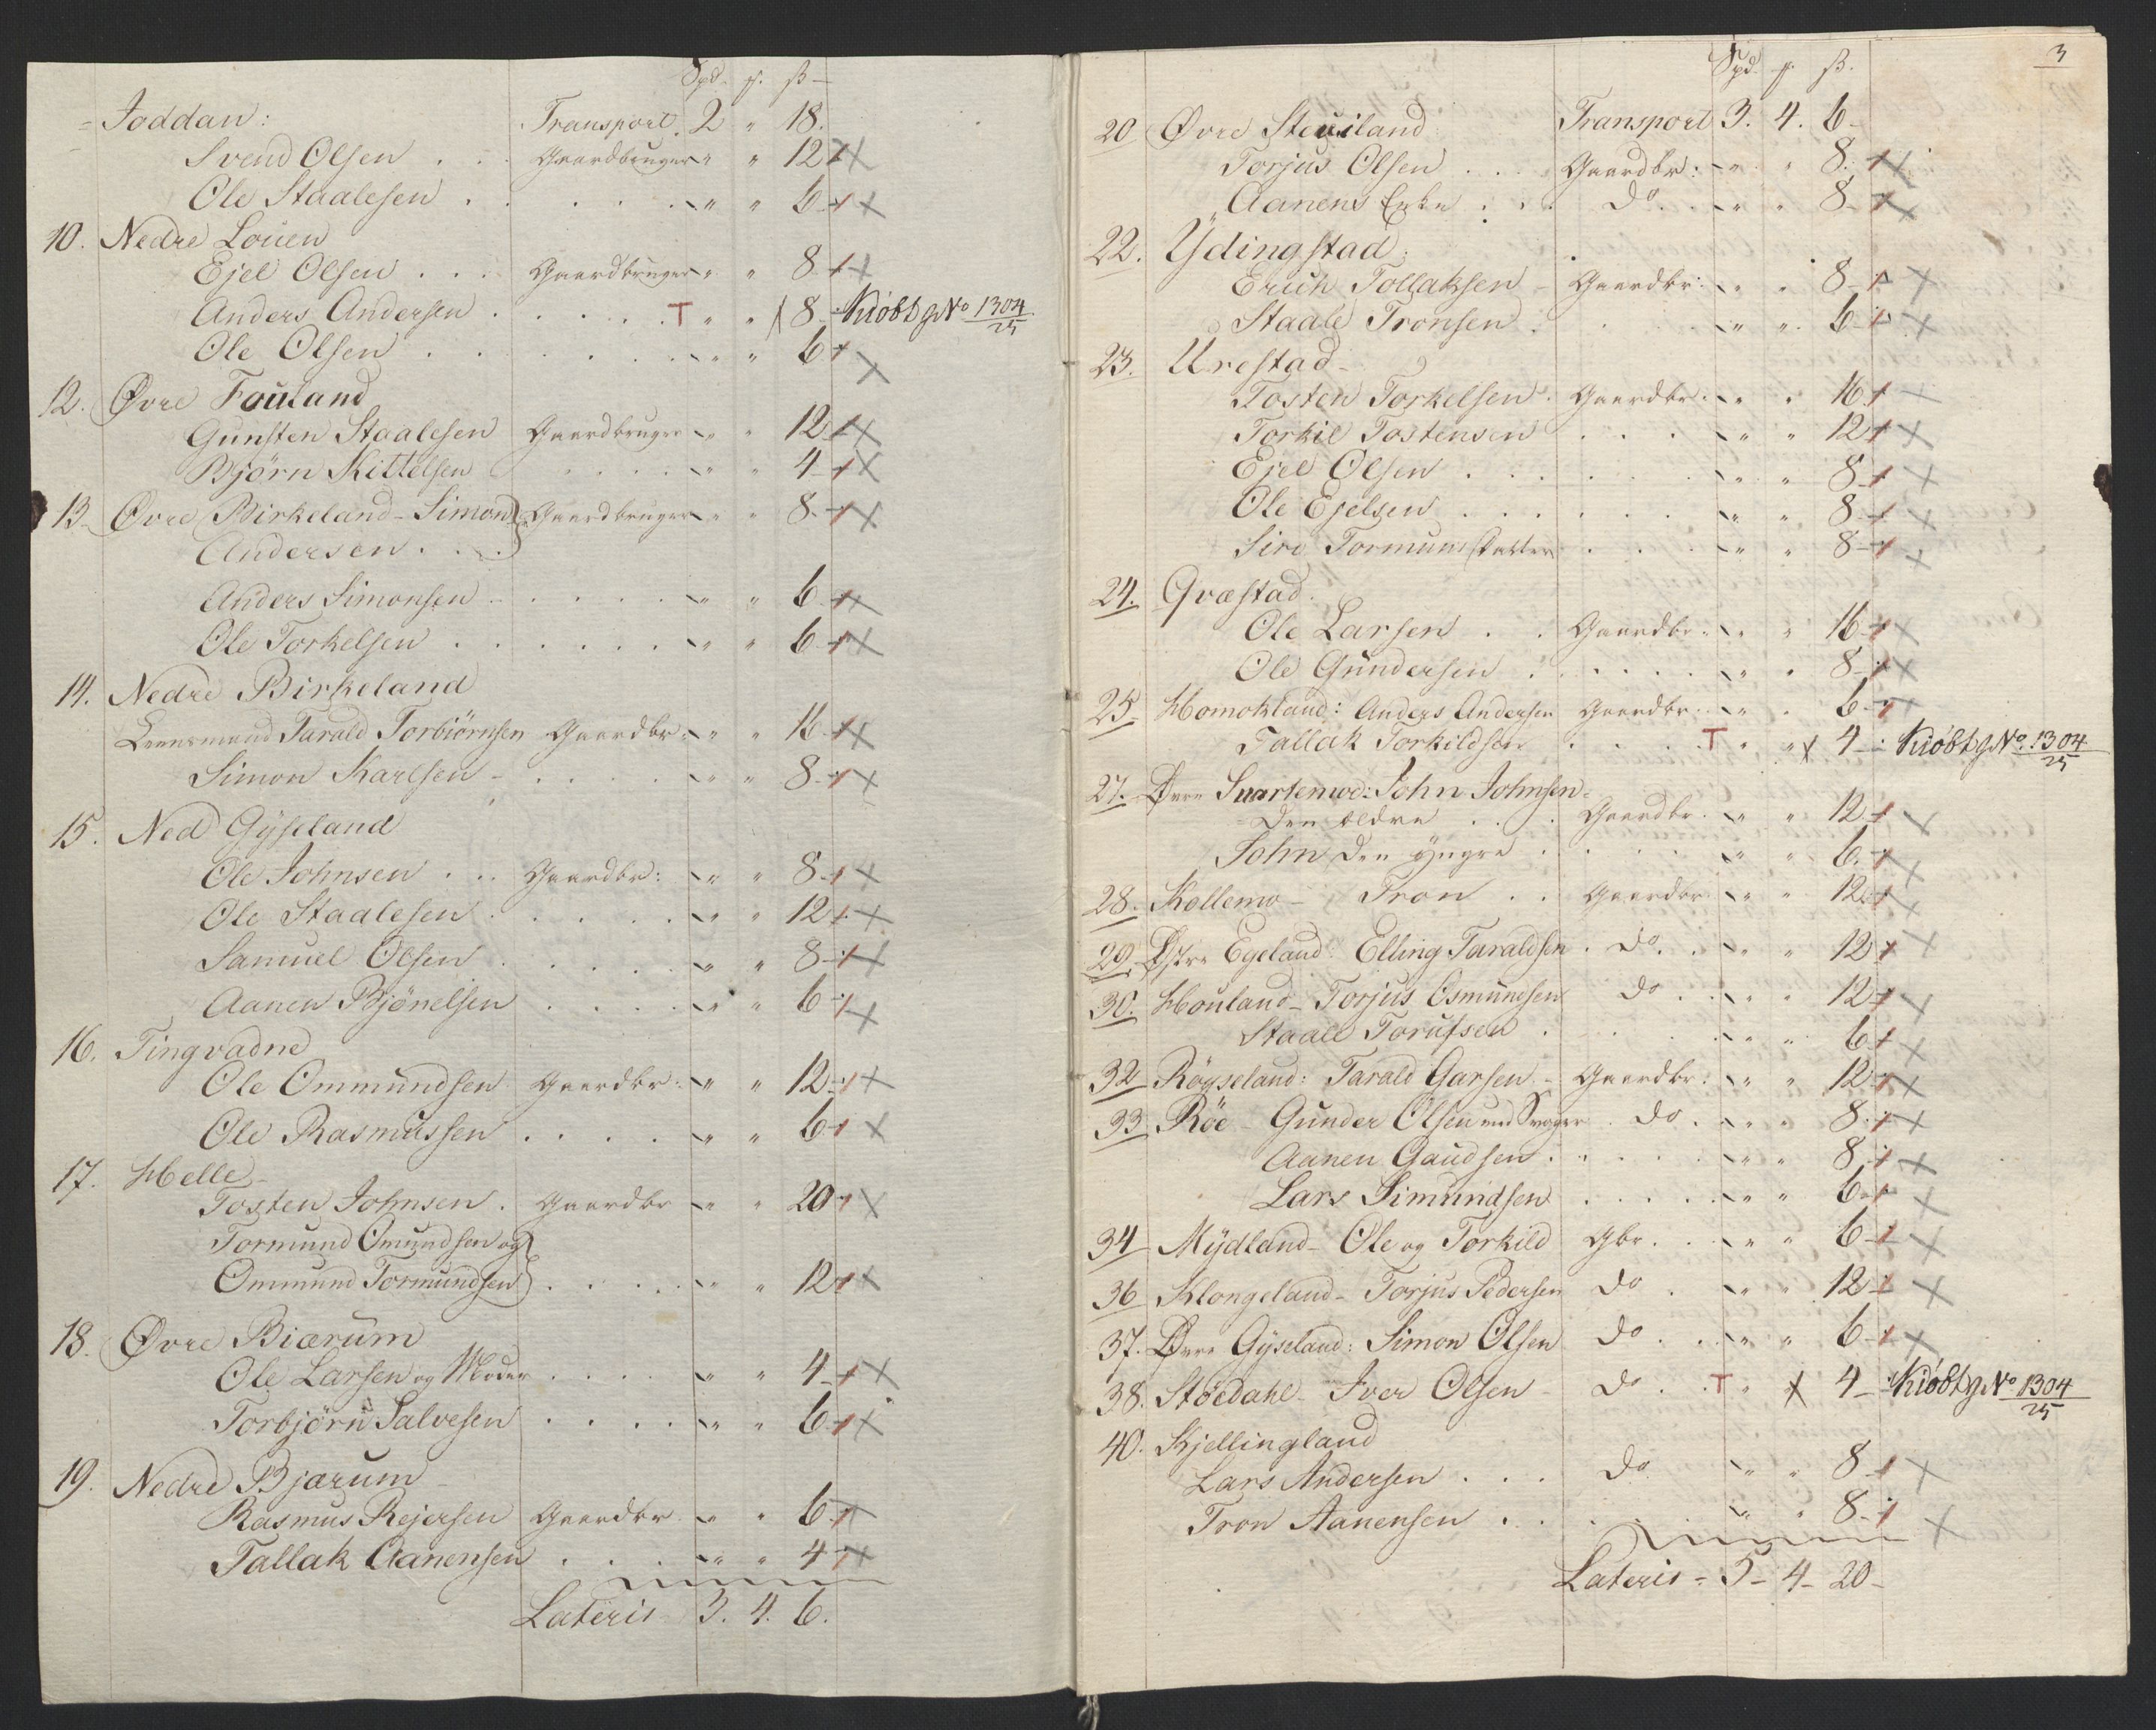 Spd. ƒ. ß
Joddan: Transport. 2 " 18.
Svend Olsen . . . Gaardbruger " " 12
Ole Staalesen . . . . . " " 6
10. Nedre Louen
Ejel Olsen . . . Gaardbruger " " 8
Anders Andersen . . . . . T " " 8 Kiöbt g No 1304/25
Ole Olsen . . . . . " " 6
12. Øvre Fouland
Gunsten Staalesen Gaardbruger " " 12
Bjørn Kittelsen . . . . " " 4
13. Øvre Birkeland - Simon Gaardbruger " " 8
Andersen . . .
Anders Simonsen . . . . . " " 6
Ole Torkelsen . . . . . . " " 6
14. Nedre Birkeland
Leensmand Tarald Torbiörnsen Gaardbr: " " 16
Simon Karlsen - . . . . " " 8
15. Ned Gÿseland
Ole Johnsen . . . Gaardbr: " " 8
Ole Staalesen . . . . . " " 12
Samuel Olsen . . . . . " " 8
Aanen Bjönelsen . . . . " " 6
16. Tingvadne
Ole Ommundsen Gaardbr: " " 12
Ole Rasmussen . . . . . " " 6
17. Helle
Tosten Johnsen . Gaardbr " " 20
Tormund Omundsen og
Ommund Tormundsen . . . . . " " 12
18. Øvre Biærum
Ole Larsen og Moder . . . . " " 4
Torbjörn Salvesen . . . . " " 6
19. Nedre Bjærum
Rasmus Rejersen Gaardbr " " 6
Tallak Aanensen . . . " " 4
Lateris 3. 4. 6.
3
Spd. ƒ. ß.
20 Øvre Steuiland Transport 3. 4. 6
Torjus Olsen . . . Gaardbr: " " 8
Aanens Enke . . . Do. " " 8
22. Ydingstad:
Erich Tollaksen - Gaardbr: " " 8
Staale Tronsen . . . " " 6
23. Urestad
Tosten Torkelsen . Gaardbr. " " 16
Torkil Tostensen . . . " " 12
Ejel Olsen . . . . . " " 8
Ole Ejelsen . . . . . " " 8
Siri Tormunsdatter . . . " " 8
24. Qvæstad.
Ole Larsen . . Gaardbr. " " 16
Ole Gundersen . . . . . " " 8
25 Homokland: Anders Andersen Gaardbr. " " 6
Tallak Torkildsen . . . . T " " 4 Kiöbt g No 1304/25
27. Øvre Suartemoe: John Johnsen
Den ældre . . . Gaardbr. " " 12
John Den ÿngre . . . . " " 6
28. Kollemo - Tron . . Gaardbr " " 12
29. Østre Egeland: Elling Taraldsen . Do . " " 12
30. Houland - Torjus Osmundsen Do . " " 12
Staale Torufsen . . . " " 6
32 Rögseland: Tarald Garsen - Gaardbr: " " 12
33 Röe - Gunder Olsen med Svoger . Do . " " 8
Aanen Gaudsen . . . . " " 8
Lars Simundsen . . . . . " " 6
34 Mÿdland - Ole og Torkild Gbr. . " " 6
36 Klongeland - Torjus Pedersen Do . " " 12
37. Øvre Gÿseland: Simon Olsen Do . . " " 6
38. Stöedahl - Iver Olsen - Do . . T " " 4 Kiöbt g No 1304/25
40. Kjellingland
Lars Andersen . . . Do " " 8
Tron Aanensen . . . " " 8
Lateris - 5 - 4 - 20 -